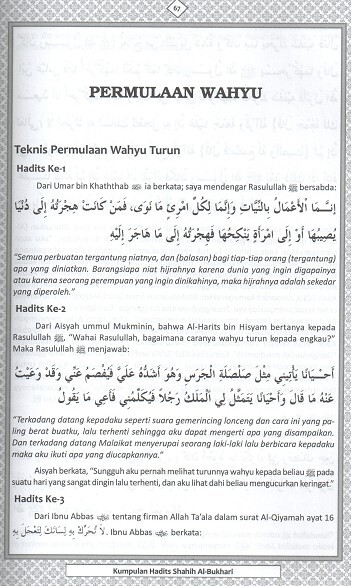 67
PERMULAAN WAHYU
Teknis Permulaan Wahyu Turun
Hadits Ke-1
Dari Umar bin Khaththab ﷺ ia berkata; saya mendengar Rasulullah ﷺ bersabda:
إِنَّمَا الْأَعْمَالُ بِالنِّيَّاتِ وَإِنَّمَا لِكُلِّ امْرِئٍ مَا نَوَى، فَمَنْ كَانَتْ هِجْرَتُهُ إِلَى دُنْيَا
يُصِيبُهَا أَوْ إِلَى امْرَأَةٍ يَنْكِحُهَا فَهِجْرَتُهُ إِلَى مَا هَاجَرَ إِلَيْهِ
“Semua perbuatan tergantung niatnya, dan (balasan) bagi tiap-tiap orang (tergantung)
apa yang diniatkan. Barangsiapa niat hijrahnya karena dunia yang ingin digapainya
atau karena seorang perempuan yang ingin dinikahinya, maka hijrahnya adalah sekedar
yang diperoleh.”
Hadits Ke-2
Dari Aisyah ummul Mukminin, bahwa Al-Harits bin Hisyam bertanya kepada
Rasulullah ﷺ, “Wahai Rasulullah, bagaimana caranya wahyu turun kepada engkau?”
Maka Rasulullah ﷺ menjawab:
أَحْيَانًا يَأْتِينِي مِثْلَ صَلْصَلَةِ الْجَرَسِ وَهُوَ أَشَدُّهُ عَلَيَّ فَيُفْصَمُ عَنِّي وَقَدْ وَعَيْتُ
عَنْهُ مَا قَالَ وَأَحْيَانًا يَتَمَثَّلُ لِي الْمَلَكُ رَجُلًا فَيُكَلِّمُنِي فَأَعِي مَا يَقُولُ
“Terkadang datang kepadaku seperti suara gemerincing lonceng dan cara ini yang pa-
ling berat buatku, lalu terhenti sehingga aku dapat mengerti apa yang disampaikan.
Dan terkadang datang Malaikat menyerupai seorang laki-laki lalu berbicara kepadaku
maka aku ikuti apa yang diucapkannya.”
Aisyah berkata, “Sungguh aku pernah melihat turunnya wahyu kepada beliau ﷺ pada
suatu hari yang sangat dingin lalu terhenti, dan aku lihat dahi beliau mengucurkan keringat.”
Hadits Ke-3
Dari Ibnu Abbas tentang firman Allah Ta’ala dalam surat Al-Qiyamah ayat 16
لَا تُحَرِّكْ بِهِ لِسَانَكَ لِتَعْجَلَ بِهِ. Ibnu Abbas berkata:
Kumpulan Hadits Shahih Al-Bukhari